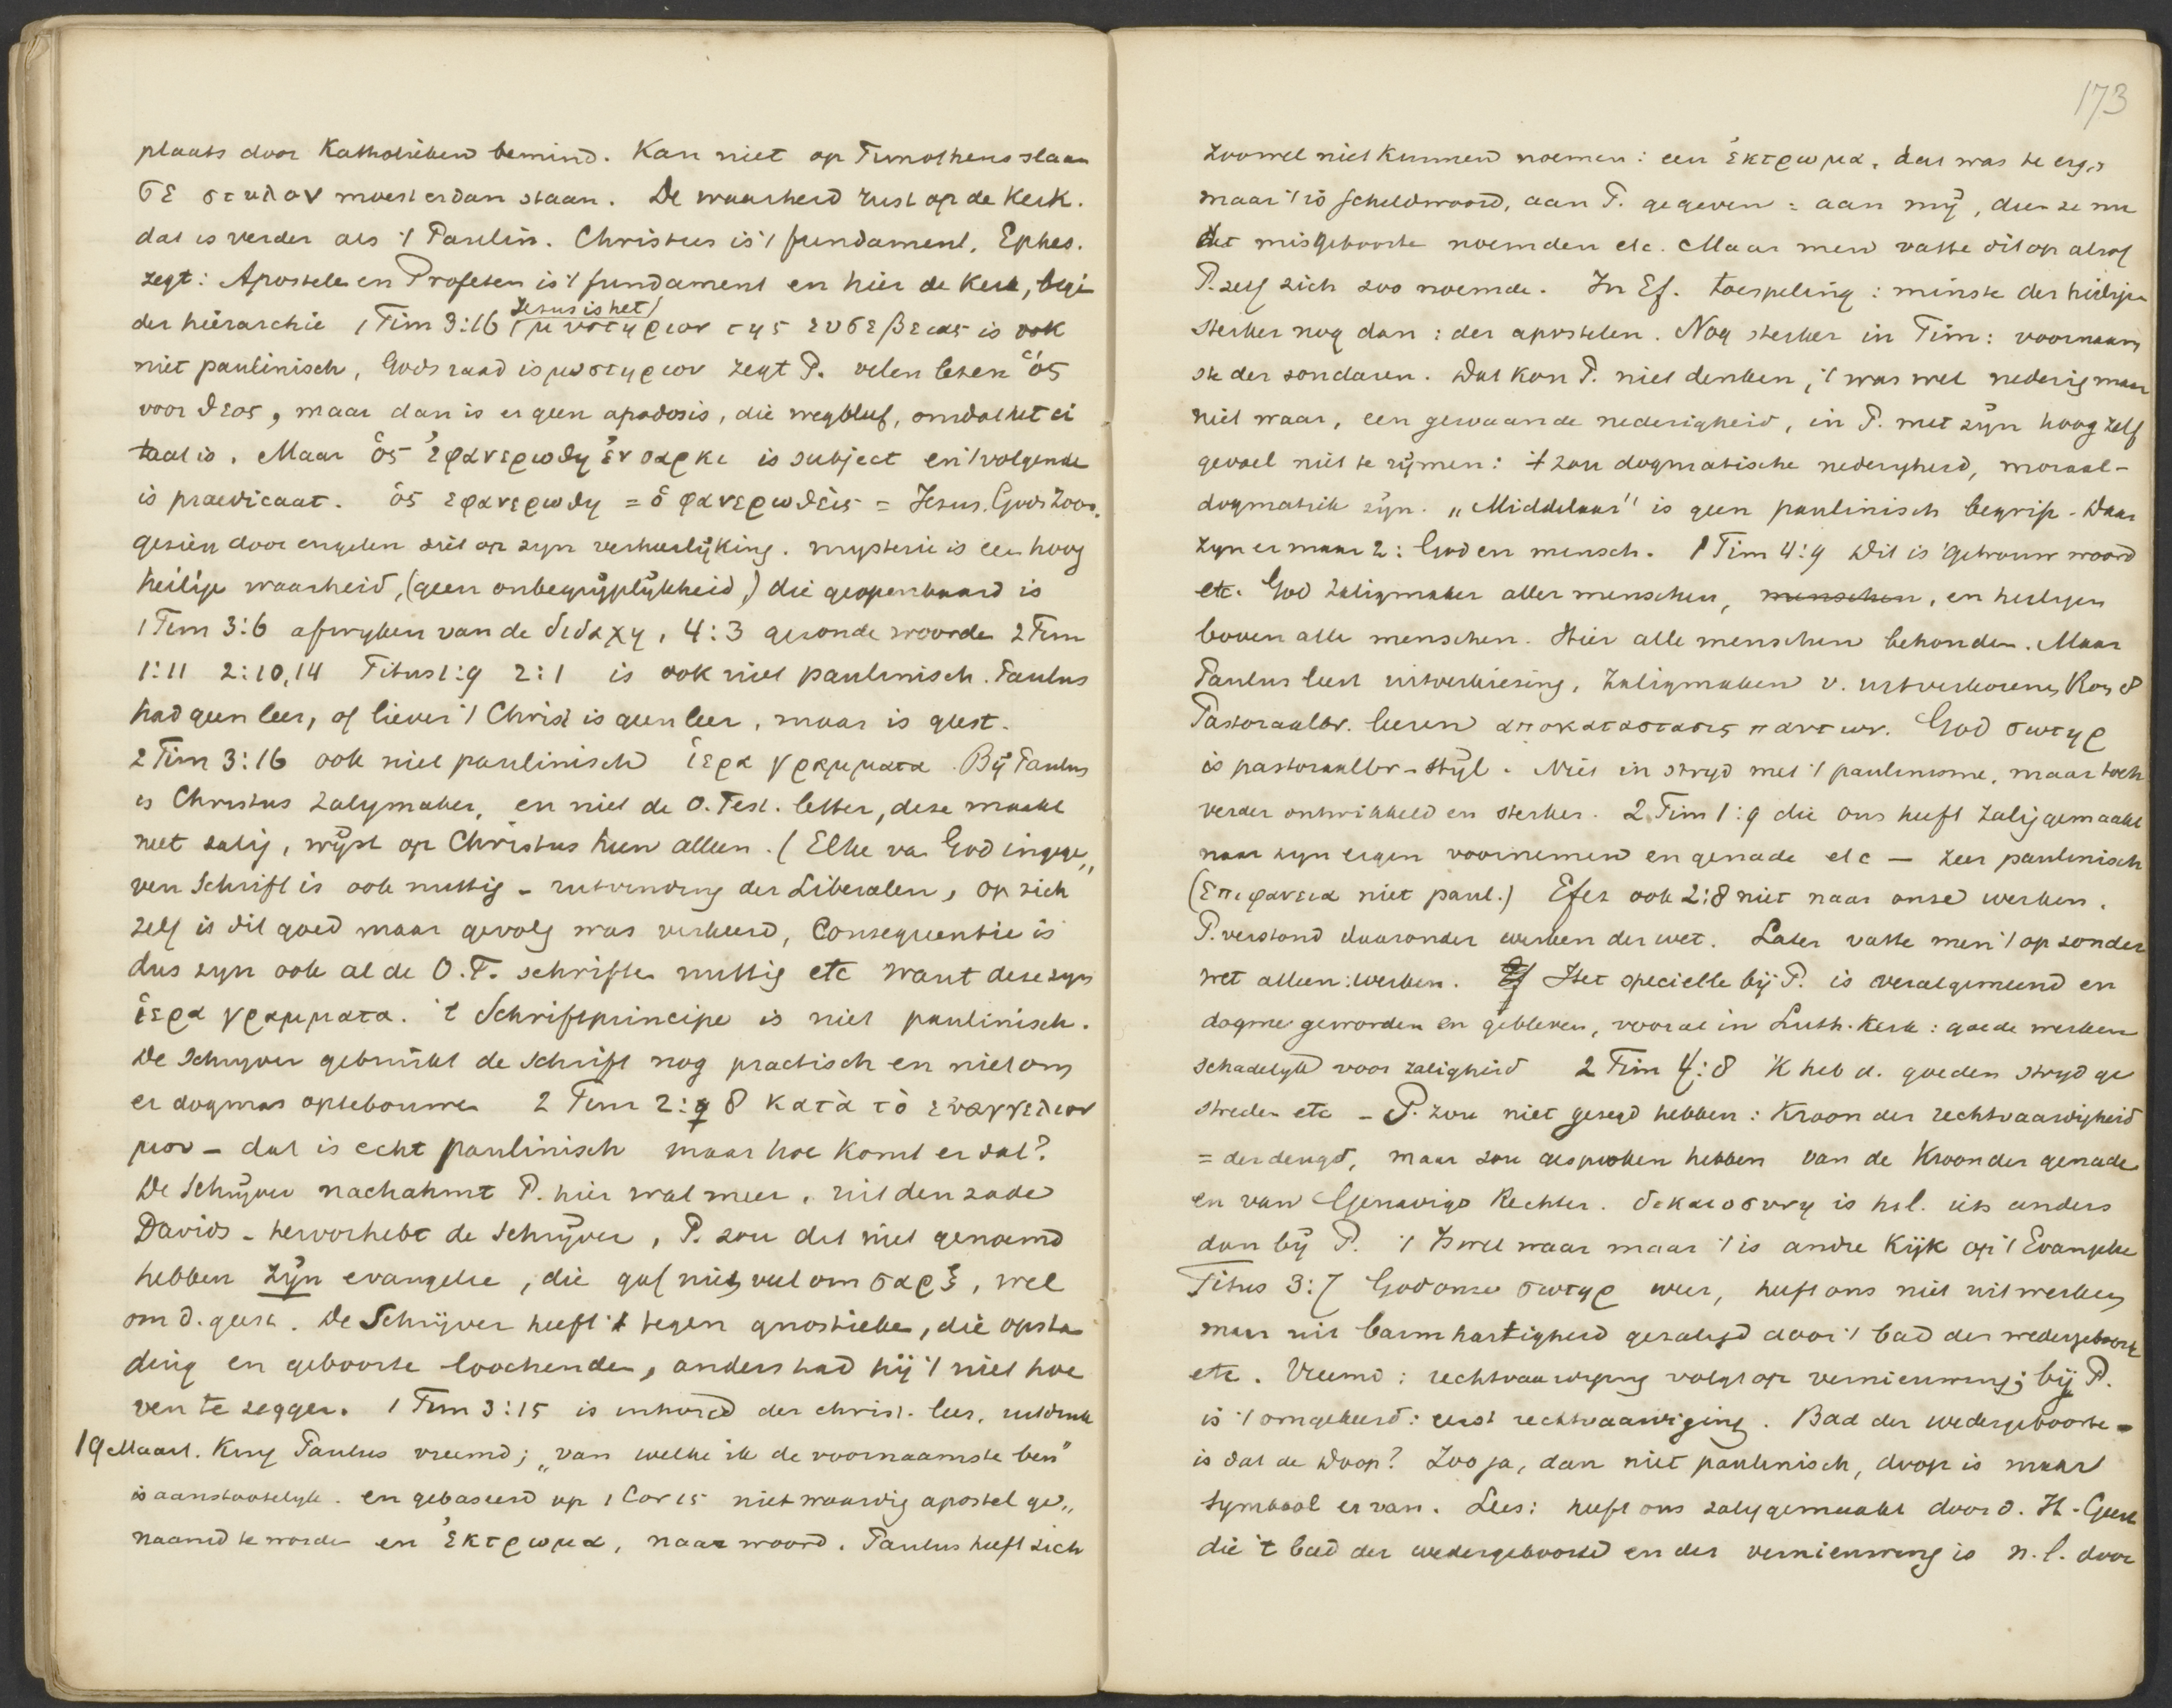 plaats door Katholieken bemind. Kan niet op Timotheus slaan
σε στυλον moest er dan staan. De waarheid rust op de Kerk.
dat is verder als 't Paulin. Christus is 't fundament, Ephes.
zegt: Apostelen en Profeten is 't fundament en hier de Kerk, begi
der hiërarchie 1 Tim 3:16 μυστηριον της ευσεβειας is ook
Jesus is het
niet paulinisch, Gods raad is μυστηριον zegt P. velen lezen ὅς
voor θεος, maar dan is er geen apodosis, die wegbleef, omdat het ci
taat is. Maar ὅς ἐφανερωθη ἐν σαρκι is subject en 't volgende
is praedicaat. ὅς εφανερωθη = ὁ φανερωθεις = Jesus. Gods Zoon.
gezien door engelen ziet op zyn verheerlijking. mysterie is een hoog
heilige waarheid, (geen onbegrijplijkheid) die geopenbaard is
1 Tim 3:6 afwyken van de διδαχη, 4:3 gezonde woorden 2 Tim
1:11 2:10,14 Titus 1:9 2:1 is ook niet paulinisch. Paulus
had geen leer, of liever 't Christ is geen leer, maar is geest.
2 Tim 3:16 ook niet paulinisch ἱερα γραμματα. Bij Paulus
is Christus zaligmaker, en niet de O. Test. letter, deze maakt
niet zalig, wijst op Christus heen alleen. (Elke van God ingege„
ven Schrift is ook nuttig - uitvinding der Liberalen, op zich
zelf is dit goed maar gevolg was verkeerd, Consequentie is
dus zyn ook al de O.T. schriften nuttig etc want deze zyn
ἱερα γραμματα. 't Schriftprincipe is niet paulinisch.
De Schryver gebruikt de Schrift nog practisch en niet om
er dogmas op te bouwen 2 Tim 2:8 κατὰ τὸ ευαγγελιον
μου - dat is echt paulinisch maar hoe komt er dat?
De Schrijver nachahmt P. hier wat meer. uit den zade
Davids - hervorhebt de Schrijver, P. zou dit niet genoemd
hebben zijn evangelie, die gaf niet veel om σαρξ, wel
om d. geest. De Schrijver heeft 't tegen gnostieken, die opstan
ding en geboorte loochenden, anders had hij 't niet hoe
ven te zeggen. 1 Tim 3:15 is inhoud der christ. leer,
19 Maart. Paulus vreemd; „van welke ik de voornaamste ben"
is aanstootelyk. en gebaseerd op 1 Cor 15 niet waardig apostel ge„
naamd te worden en ἐκτρωμα, naar woord. Paulus heeft zich
173
zoowel niet kunnen noemen: een ἐκτρωμα, dat was te erg„
maar 't is scheldwoord, aan P. gegeven: aan mij, dien ze nu
det misgeboorte noemden etc. Maar men vatte dit op alsof
P. zelf zich zoo noemde. In Ef. toespeling: minste der heiligen
sterker nog dan: der apostelen. Nog sterker in Tim: voornaam
ste der zondaren. Dat kon P. niet denken, 't was wel nederig maar
niet waar, een gewaande nederigheid, in P. met zijn hoog zelf
gevoel niet te rijmen: 't zou dogmatische nederigheid, moraal-
dogmatiek zijn. „Middelaar" is geen paulinisch begrip. Daar
zyn er maar 2: God en mensch. 1 Tim 4:9 Dit is 'getrouw woord
etc. God Zaligmaker aller menschen, menschen, en heiligen
boven alle menschen. Hier alle menschen behouden. Maar
Paulus leert uitverkiezing, Zaligmaken v. uitverkorenen, Rom 8
Pastoraalbr. leeren αποκαταστασις παντων. God σωτηρ
is pastoraalbr-stijl. Niet in stryd met 't paulinisme, maar toch
verder ontwikkeld en sterker. 2 Tim 1:9 die ons heeft zalig gemaakt
naar zyn eigen voornemen en genade etc — zeer paulinisch
(Επιφανεια niet paul.) Efez ook 2:8 niet naar onze werken.
P. verstond daaronder werken der wet. Later vatte men 't op zonder
wet alleen: werken. Het specielle bij P. is veralgemeend en
dogme geworden en gebleven, vooral in Luth. Kerk: goede werken
schadelyk voor zaligheid 2 Tim 4:8 'K heb d. goeden stryd ge
streden etc - P. zou niet gezegd hebben: Kroon der rechtvaardigheid
= der deugd, maar zou gesproken hebben van de Kroon der genade
en van Genadige Rechter. δικαιοσυνη is hier iets anders
dan bij P. 't Is wel waar maar 't is andre kijk op 't Evangelie
Titus 3:7 God onze σωτηρ weer, heeft ons niet uit werken
maar uit barmhartigheid gezaligd door 't bad der wedergeboorte
etc. Vreemd: rechtvaardiging volgt op vernieuwing; bij P.
is 't omgekeerd: eerst rechtvaardiging. Bad der wedergeboorte -
is dat de Doop? Zoo ja, dan niet paulinisch, doop is maar
symbool er van. Lees: heeft ons zalig gemaakt door d. H. Geest
die 't bad der wedergeboorte en der vernieuwing is n.l. door